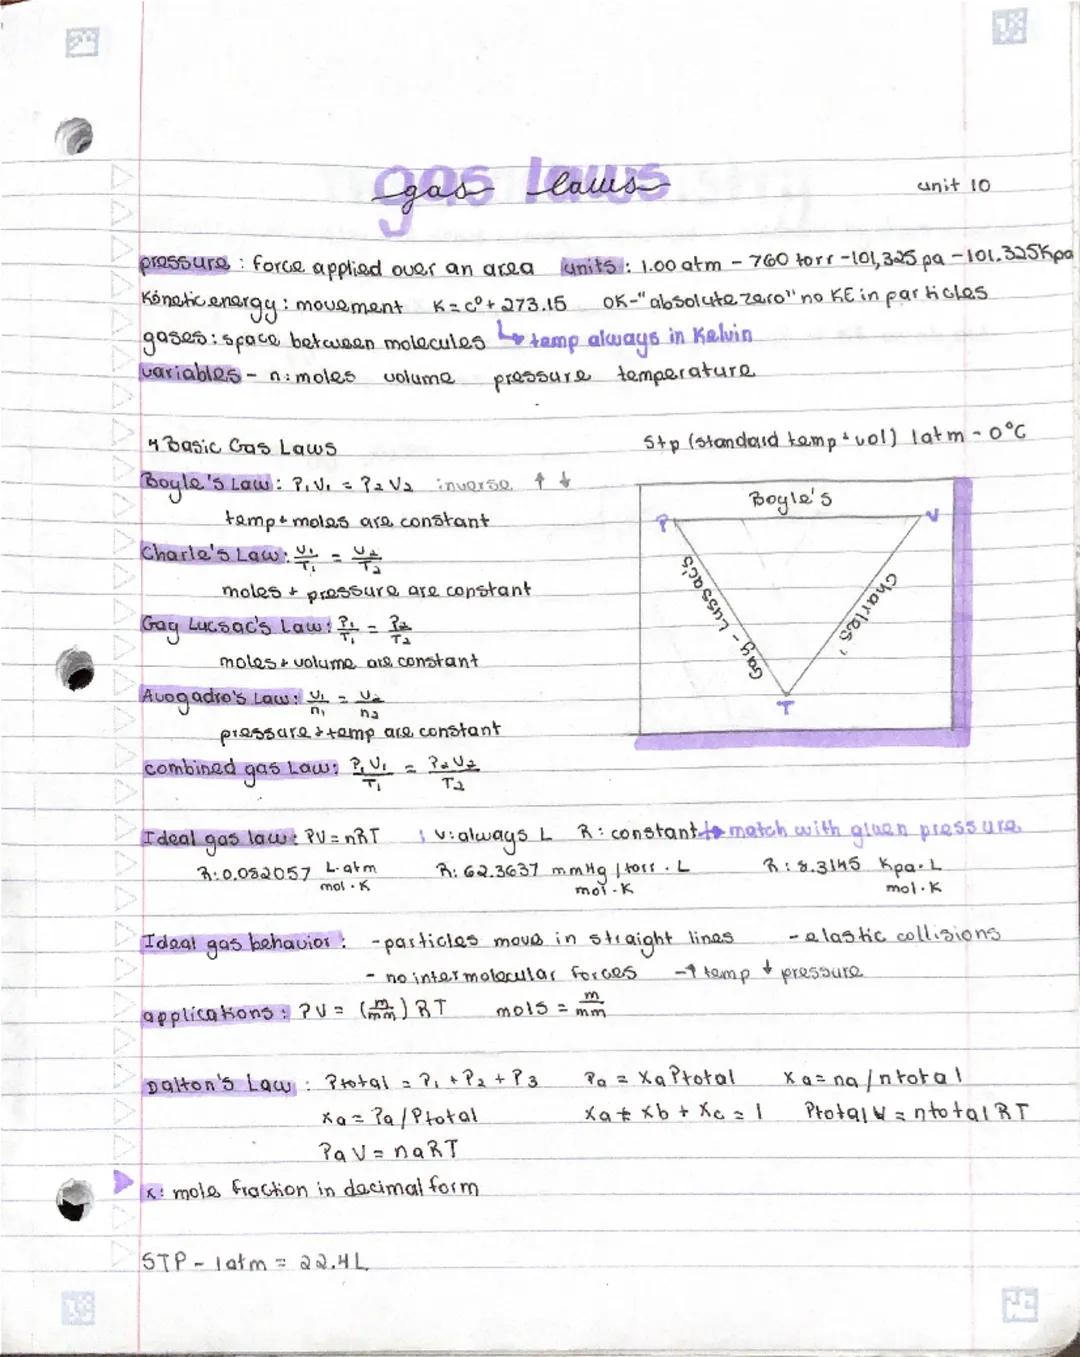 gas laws
unit 10
pressure : force applied over an area units : 1.00 atm - 760 torr - 101,325 pa - 101.325 Kpa
Kinetic energy : movement K = C° + 273.15 0K - "absolute zero" no KE in particles
gases : space between molecules ↳ temp always in Kelvin
variables - n: moles volume pressure temperature
4 Basic Gas Laws
Stp (standard temp + vol) 1atm - 0°C
Boyle's Law : P₁V₁ = P₂V₂ inverse ↑ ↓
temp + moles are constant
Charle's Law : V₁/T₁ = V₂/T₂
moles + pressure are constant
Gay Lucsac's Law : P₁/T₁ = P₂/T₂
moles + volume are constant
Avogadro's Law : V₁/n₁ = V₂/n₂
pressure + temp are constant
combined gas Law : P₁V₁/T₁ = P₂V₂/T₂
Boyle's
P
V
Gay-Lussac's
Charles'
T
Ideal gas law : PV = nRT ; V: always L R: constant → match with given pressure
R: 0.082057 L·atm/mol·K R: 62.3637 mmHg / torr · L/mol·K R: 8.3145 Kpa·L/mol·K
Ideal gas behavior : - particles move in straight lines - elastic collisions
- no intermolecular forces - ↑ temp ↓ pressure
applications : PV = (m/mm) RT mols = m/mm
Dalton's Law : Ptotal = P₁ + P₂ + P₃ Pa = XaPtotal Xa = na/ntotal
Xa = Pa/Ptotal Xa + Xb + Xc = 1 PtotalV = ntotalRT
PaV = naRT
x: mole fraction in decimal form
STP - 1atm = 22.4L